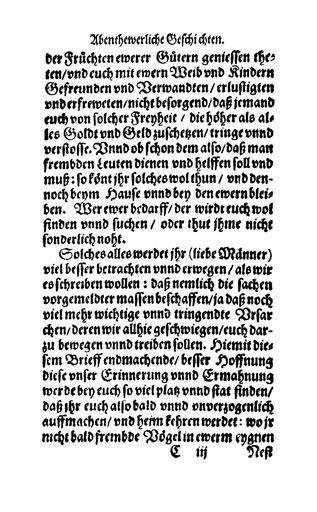 Abenthewerliche Geschichten.
der Früchten ewerer Gütern geniessen the-
ten/vnd euch mit ewern Weib vnd Kindern
Gefreunden vnd Verwandten/ erlustigten
vnd erfreweten/nicht besorgend/daß jemand
euch von solcher Freyheit / die höher als al-
les Goldt vnd Geld zuschetzen/ tringe vnnd
verstosse. Vnnd ob schon dem also/ daß man
frembden Leuten dienen vnd helffen soll vnd
muß: so könt jhr solches wol thun/ vnd den-
noch beym Hause vnnd bey den ewern blei-
ben. Wer ewer bedarff/ der wirdt euch wol
finden vnnd suchen / oder thut jhme nicht
sonderlich noht.
Solches alles werdet jhr (liebe Männer)
viel besser betrachten vnnd erwegen/ als wir
es schreiben wollen: daß nemlich die sachen
vorgemeldter massen beschaffen/ja daß noch
viel mehr wichtige vnnd tringendte Vrsa-
chen/deren wir allhie geschwiegen/euch dar-
zu bewegen vnnd treiben sollen. Hiemit die-
sem Brieff endmachende/ besser Hoffnung
diese vnser Erinnerung vnnd Ermahnung
werde bey euch so viel platz vnnd stat finden/
daß jhr euch also bald vnnd vnverzogenlich
auffmachen/ vnd heim kehren werdet: wo jr
nicht bald frembde Vögel in ewerm eygnen
C iij Nest